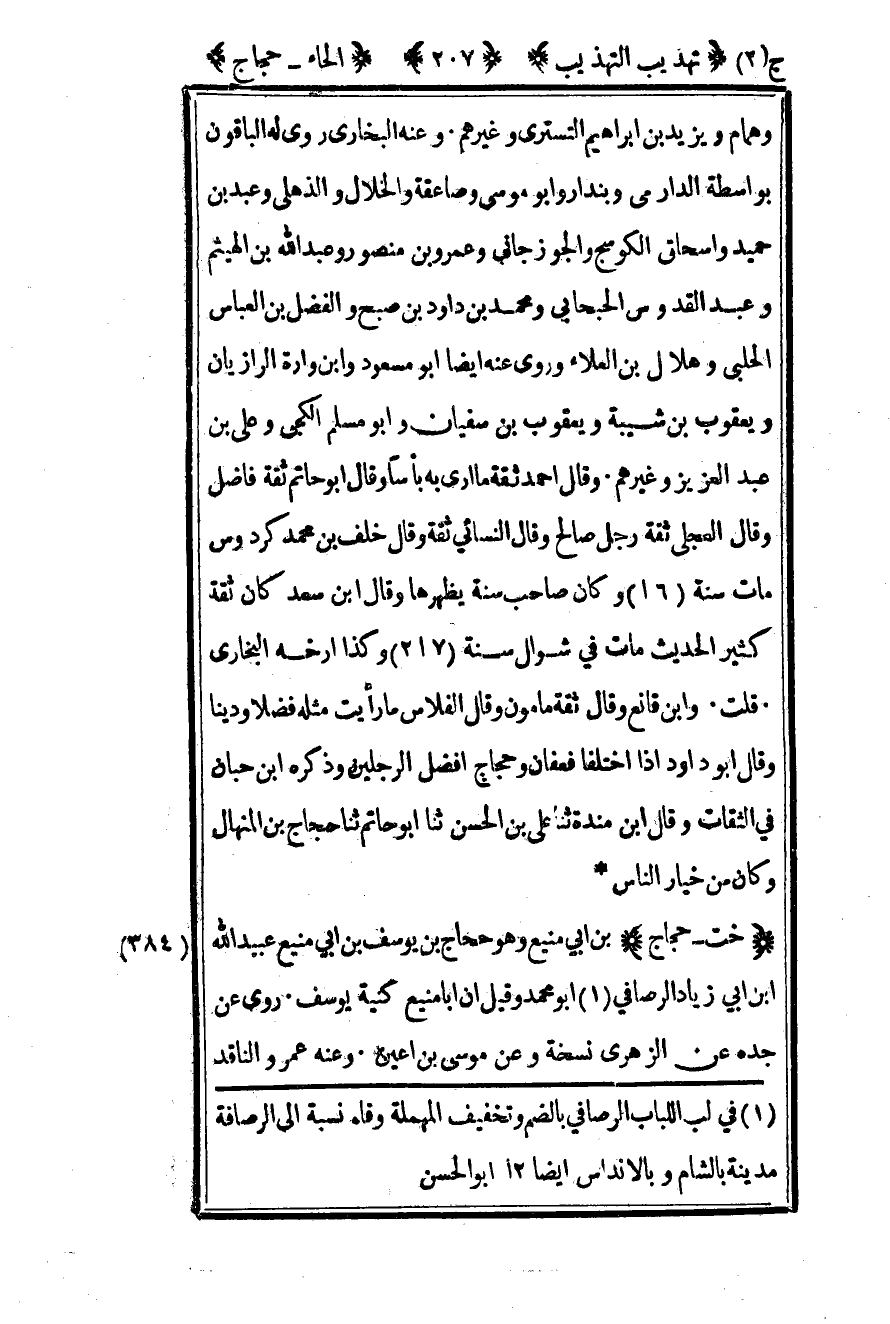 ج(٢) ﴿ تهذيب التهذيب ﴾ ﴿ ٢٠٧ ﴾ ﴿ الحاء ـ حجاج ﴾
وهمام ويزيد بن ابراهيم التسترى وغيرهم ٠ وعنه البخارى روى له الباقون
بواسطة الدارمى وبندار وابو موسى وصاعقة والخلال والذهلى وعبد بن
حميد واسحاق الكوسج والجوزجاني وعمرو بن منصور وعبد الله بن الهيثم
وعبد القدوس الحبحابي ومحمد بن داود بن صبيح والفضل بن العباس
الحلبى وهلال بن العلاء وروى عنه ايضا ابو مسعود وابن وارة الرازيان
ويعقوب بن شيبة ويعقوب بن سفيان وابو مسلم الكجى وعلى بن
عبد العزيز وغيرهم ٠ وقال احمد ثقة ما ارى به بأسا وقال ابو حاتم ثقة فاضل
وقال العجلى ثقة رجل صالح وقال النسائي ثقة وقال خلف بن محمد كردوس
مات سنة (١٦) وكان صاحب سنة يظهرها وقال ابن سعد كان ثقة
كثير الحديث مات في شوال سنة (٢١٧) وكذا ارخه البخارى
٠ قلت ٠ وابن قانع وقال ثقة مامون وقال الفلاس مارأيت مثله فضلا ودينا
وقال ابو داود اذا اختلفا فعفان وحجاج افضل الرجلين وذكره ابن حبان
في الثقات وقال ابن مندة ثنا على بن الحسن ثنا ابو حاتم ثنا حجاج بن المنهال
وكان من خيار الناس *
﴿ خت ـ حجاج ﴾ بن ابي منيع وهو حجاج بن يوسف بن ابي منيع عبيد الله (٣٨٤)
ابن ابي زياد الرصافي (١) ابو محمد وقيل ان ابا منيع كنية يوسف ٠ روى عن
جده عن الزهرى نسخة وعن موسى بن اعين ٠ وعنه عمرو الناقد
(١) في لب اللباب الرصافي بالضم وتخفيف المهملة وفاء نسبة الى الرصافة
مدينة بالشام وبالاندلس ايضا ١٢ ابو الحسن